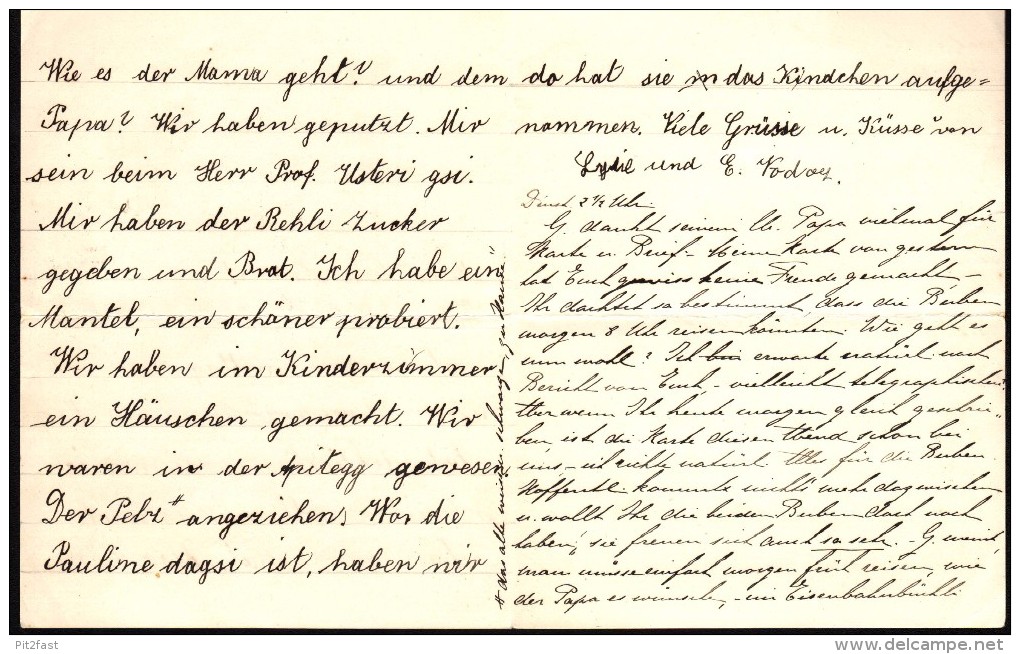 Wie es der Mama geht? und dem
Papa? Wir haben geputzt. Mir
sein beim Herr Prof. Usteri gsi.
Mir haben der Rehli Zucker
gegeben und Brot. Ich habe ein
Mantel, ein schöner probiert.
Wir haben im Kinderzimmer
ein Häuschen gemacht. Wir
waren in der gewesen.
Der Pelz # angeziehen. Wo die
Pauline dagsi ist, haben wir
# das alte
do hat sie in das Kindchen aufge=
nommen. Viele Grüsse u. Küsse von
Lydie und E.
2 1/2 Uhr
G. dankt seinem lb. Papa vielmal für
Karte u. Brief – Meine Karte von gestern
hat Euch gewiss keine Freude gemacht, –
Ihr dachtet so bestimmt, dass die Buben
morgen 8 Uhr reisen könnten. Wie geht es
nun wohl? Ich bin erwarte natürl. noch
Bericht von Euch, – vielleicht telegraphischen.
Aber wenn Ihr heute morgen gleich geschrie=
ben, ist die Karte diesen Abend schon bei
uns, – natürl. Alles für die Buben.
Hoffentl. kommt nichts mehr dazwischen
u. wollt Ihr die beiden Buben doch noch
haben, sie freuen sich auch so sehr. – G. meint
man müsse einfach morgen früh reisen, wie
der Papa es wünsche, – im Eisenbahnbüchli
Pit2fast
www.delcampe.net